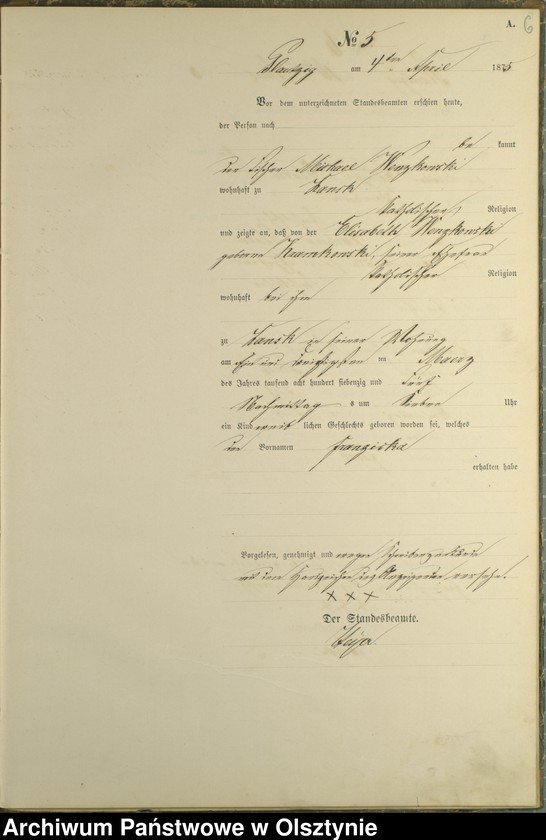 A. 6
№ 5
am 4ten April 1875
Vor dem unterzeichneten Standesbeamten erschien heute,
der Person nach
be kannt
der Fischer Michael Wenzkowski
wohnhaft zu Lansk
katholischer Religion
und zeigte an, daß von der Elisabeth Wenzkowski
geborne seiner Ehefrau
katholischer Religion
wohnhaft bei ihm
zu Lansk in seiner Wohnung
am ein und dreißigsten Maerz
des Jahres tausend acht hundert siebenzig und fünf
Nachmittag s um sieben Uhr
ein Kind weib lichen Geschlechts geboren worden sei, welches
den Vornamen Franziska
erhalten habe
Vorgelesen, genehmigt und wegen
mit dem Handzeichen des versehn.
× × ×
Der Standesbeamte.
Archiwum Państwowe w Olsztynie